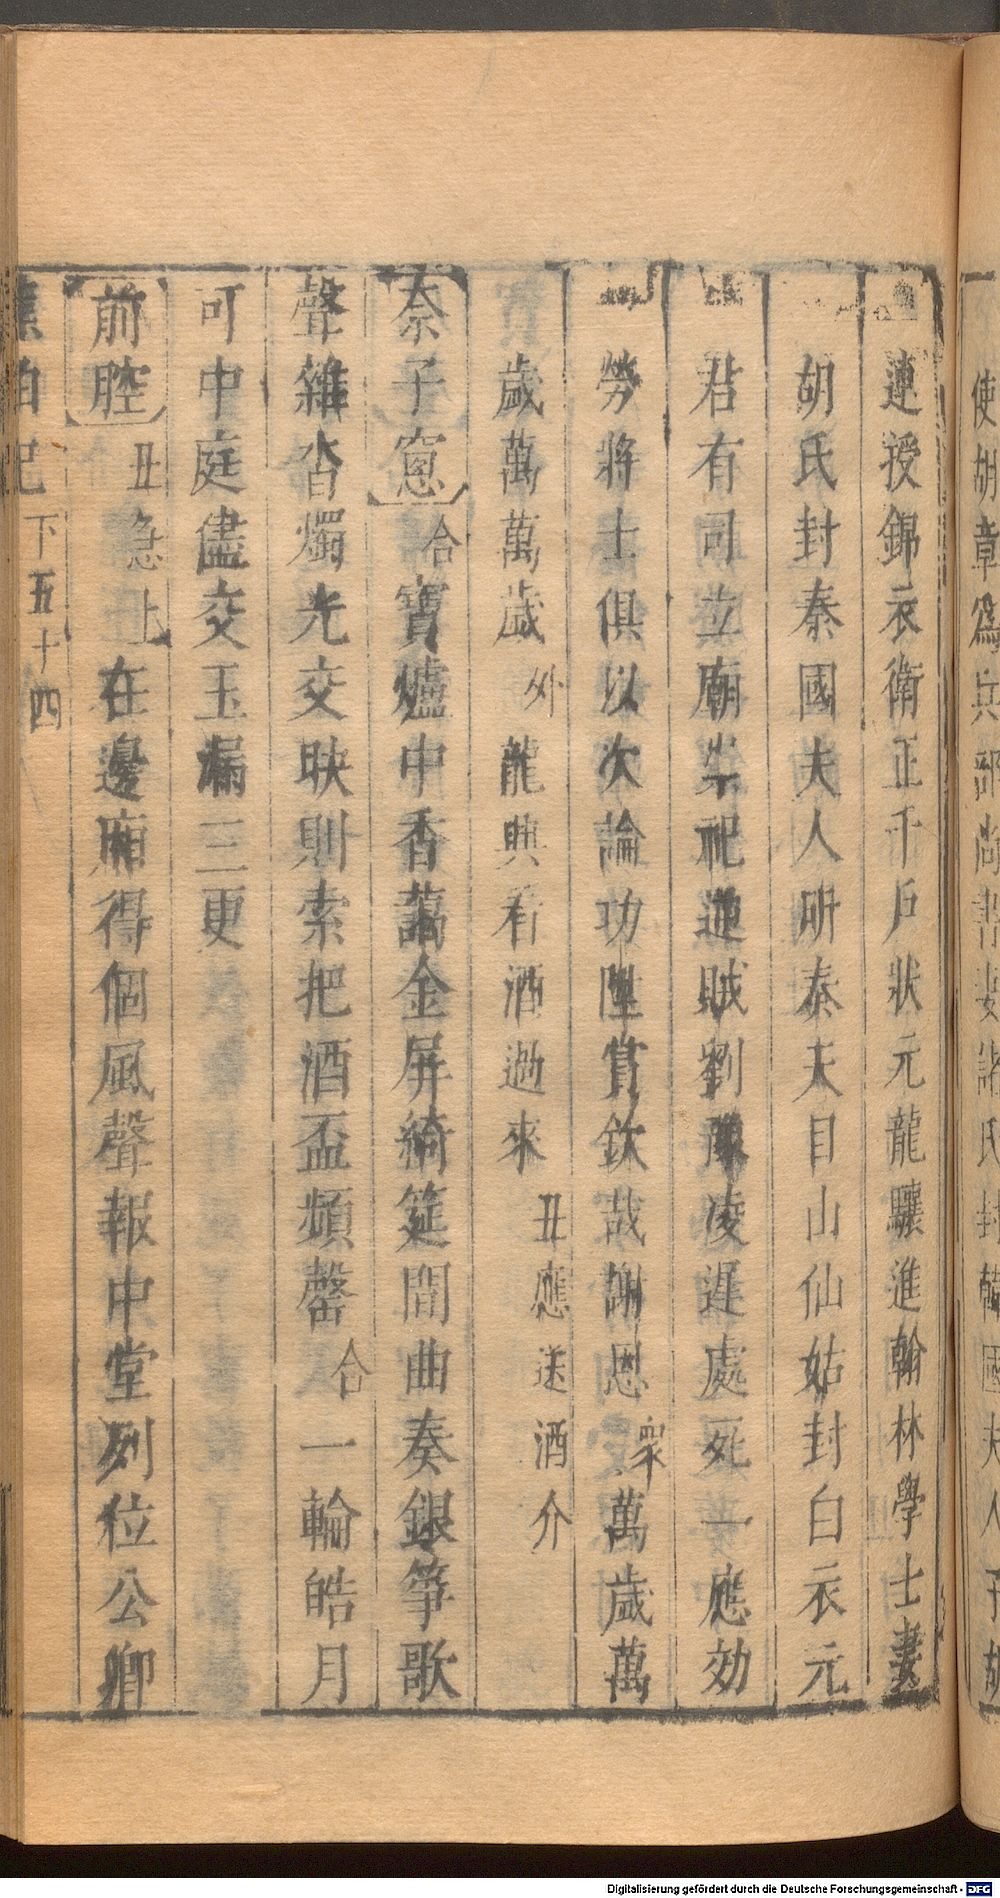 使胡章爲兵部尚書妻諸氏封韓國夫人子胡
連授錦衣衛正千戶狀元龍驤進翰林學士妻
胡氏封秦國夫人硏秦夫目山仙姑封白衣元
君有司立廟崇祀逆賊劉豫凌遲處死一應効
勞將士俱以次論功陞賞欽哉謝恩 衆 萬歲萬
歲萬萬歲 外 龍興看酒過來 丑應送酒介
奈子窻 合 寶爐中香藹金屏綺筵間曲奏銀箏歌
聲雜沓燭光交映則索把酒盃頻罄 合 一輪皓月
可中庭儘交玉漏三更
前腔 丑急上 在邊廂得個風聲報中堂列位公卿
蕉帕記 下 五十四
Digitalisierung gefördert durch die Deutsche Forschungsgemeinschaft - DFG